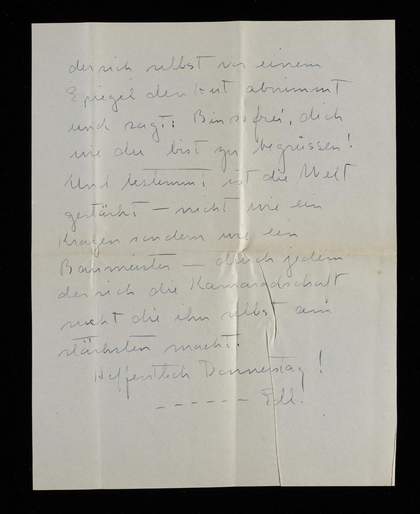 der sich selbst vor einem
Spiegel den Hut abnimmt
und sagt: Bin so frei, dich
wie du bist zu begrüssen!
Und bestimmt ist die Welt
gestärkt — nicht wie ein
Kragen sondern wie ein
Baumeister — durch jedem
der sich die Kameradschaft
sucht die ihn selbst am
stärksten macht.
Hoffentlich Donnerstag!
— — — — — —